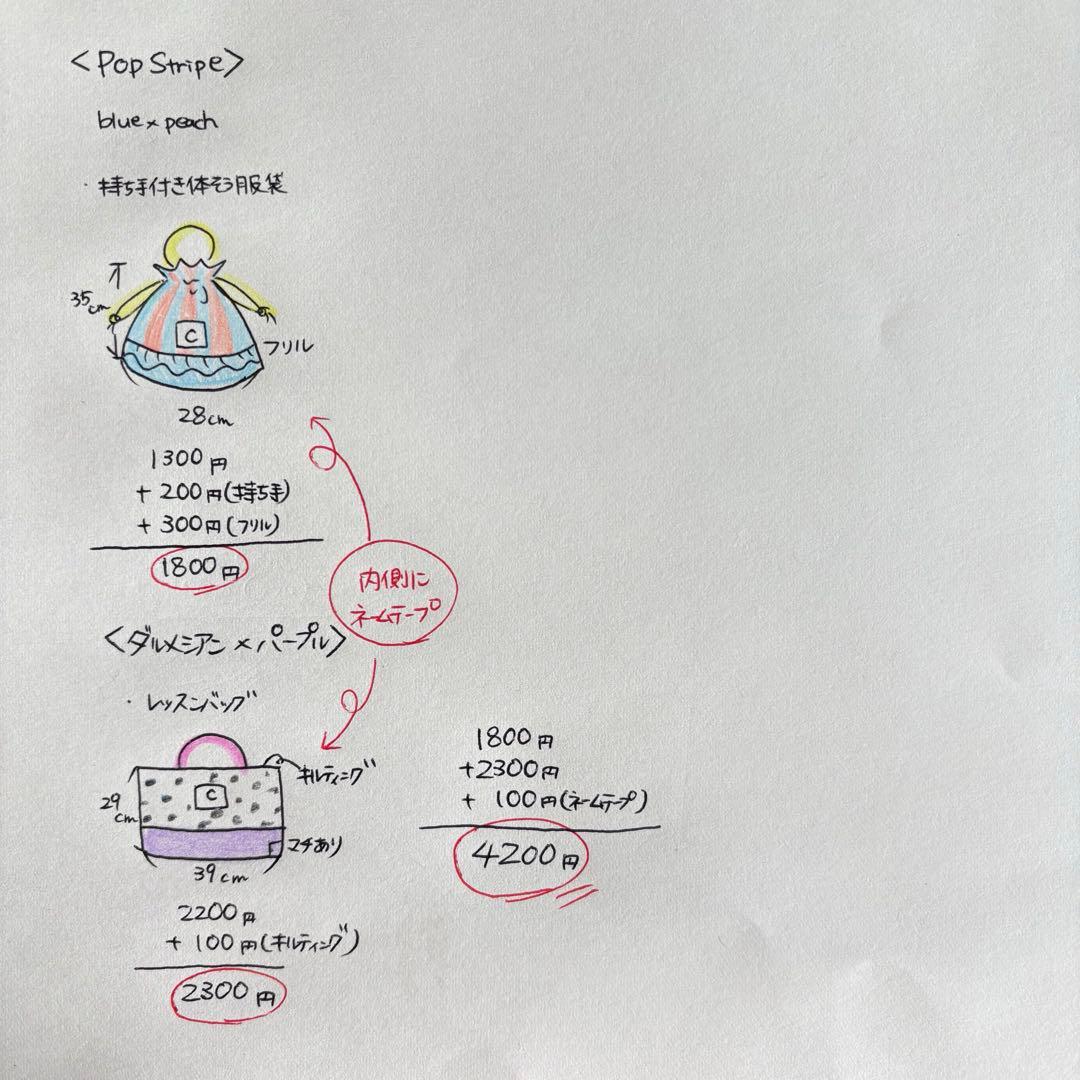 <Pop Stripe>
blue×peach
・持ち手付き体そう服袋
35cm
C
フリル
28cm
1300円
+ 200円(持ち手)
+ 300円(フリル)
1800円
内側に
ネームテープ
<ダルメシアン×パープル>
・レッスンバッグ
キルティング
C
29
cm
マチあり
39cm
2200円
+ 100円(キルティング)
2300円
1800円
+2300円
+ 100円(ネームテープ)
4200円